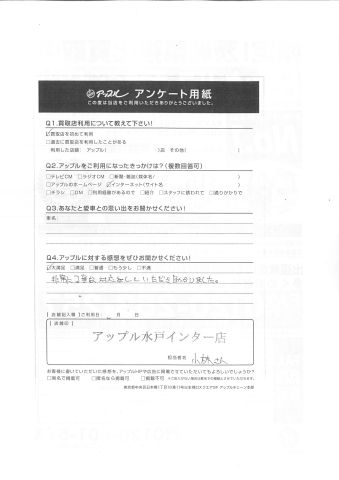 アップル アンケート用紙
この度は当店をご利用いただきありがとうございました。
Q1.買取店利用について教えて下さい!
☑買取店を初めて利用
□過去に買取店を利用したことがある
利用した店舗: アップル( )店 その他( )
Q2.アップルをご利用になったきっかけは?(複数回答可)
□テレビCM □ラジオCM □新聞・雑誌(媒体名/ )
□アップルのホームページ ☑インターネット(サイト名 )
□チラシ □DM □利用経験があるので □紹介 □スタッフに誘われて □通りがかりで
Q3.あなたと愛車との思い出をお聞かせください!
車名:
Q4.アップルに対する感想をぜひお聞かせください!
☑大満足 □満足 □普通 □もう少し □不満
非常に丁寧な対応をしていただき助かりました。
【店舗記入欄】ご利用日: 年 月 日
【店舗印】
アップル水戸インター店
担当者名 小林さん
お客様に書いていただいた感想を、アップルHPや広告に掲載させていただいてもよろしいでしょうか?
□実名で掲載可 □匿名なら掲載可 □掲載不可